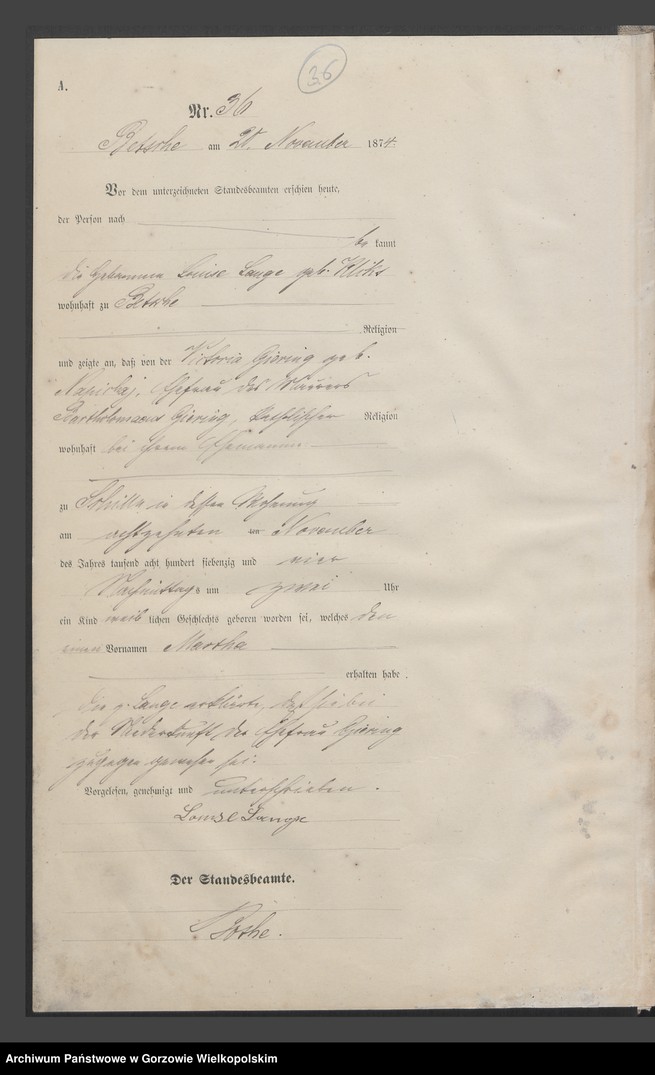 36
A.
Nr. 36
Betsche am 20. November 1874.
Vor dem unterzeichneten Standesbeamten erschien heute,
der Person nach
be kannt
die Hebamme Louise Lange geb.
wohnhaft zu Betsche
Religion
und zeigte an, daß von der Victoria Giering geb.
Ehefrau des Maurers
Bartholomaeus Giering, katholischer Religion
wohnhaft bei ihrem Ehemanne
zu in dessen Wohnung
am achtzehnten November
des Jahres tausend acht hundert siebenzig und vier
Nachmittags um zwei Uhr
ein Kind weib lichen Geschlechts geboren worden sei, welches den
einen Vornamen Martha
erhalten habe.
die p. Lange erklärte, daß sie bei
der Niederkunft der Ehefrau Giering
zugegen gewesen sei.
Vorgelesen, genehmigt und unterschrieben.
Louise Lange
Der Standesbeamte.
Archiwum Państwowe w Gorzowie Wielkopolskim